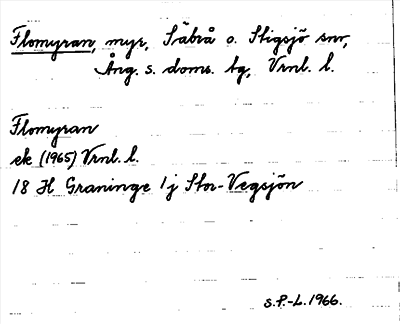 Flomyran, myr, Säbrå o. Stigsjö snr,
Ång. s. doms. tg, Vrnl. l.
Flomyran
ek (1965) Vrnl. l.
18 H Graninge 1j Stor-Vegsjön
S.P.-L. 1966.